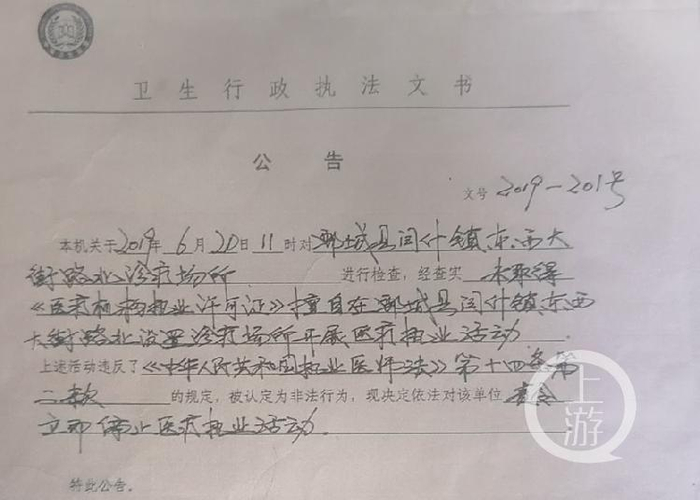 卫生行政执法文书
公 告
文号 2019-201号
本机关于2019年6月20日11时对鄄城县闫什镇东西大
街路北诊疗场所 进行检查,经查实 未取得
《医疗机构执业许可证》擅自在鄄城县闫什镇东西
大街路北设置诊疗场所开展医疗执业活动
上述活动违反了《中华人民共和国执业医师法》第十四条第
二款 的规定,被认定为非法行为,现决定依法对该单位 责令
立即停止医疗执业活动.
特此公告。
上游